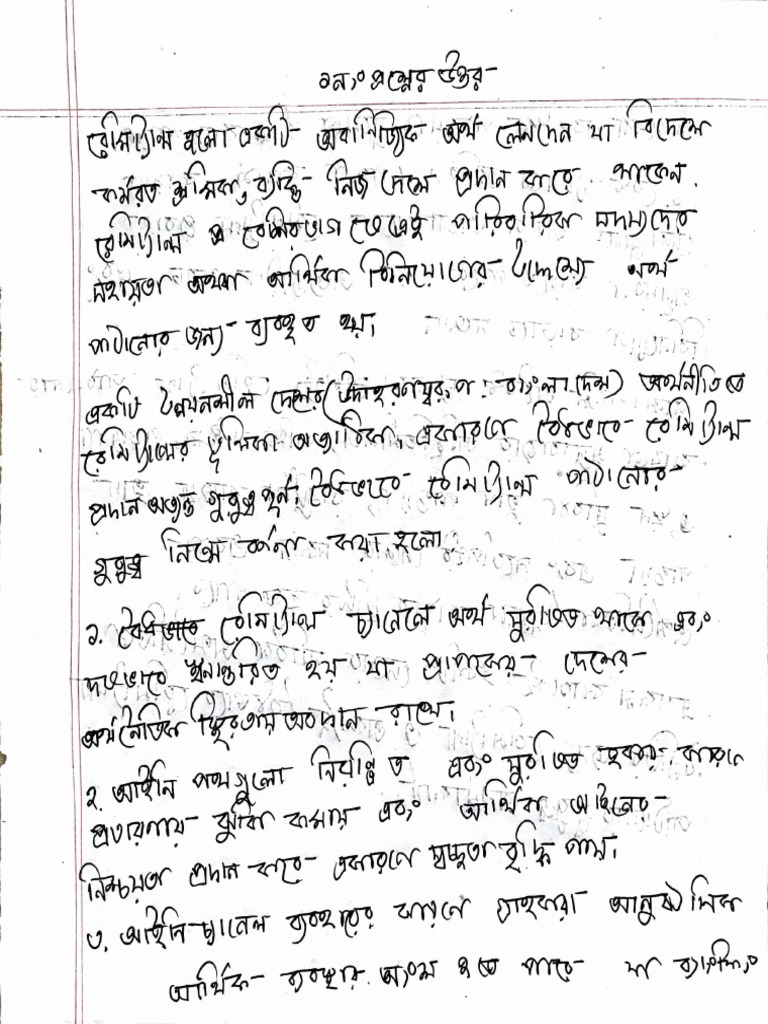 ১নং প্রশ্নের উত্তর-
রেমিট্যান্স হলো একটি অবাণিজ্যিক অর্থ লেনদেন যা বিদেশে
কর্মরত শ্রমিক, ব্যক্তি- নিজ দেশে প্রদান করে থাকেন.
রেমিট্যান্স বেশিরভাগ ক্ষেত্রেই পারিবারিক সদস্যদের
সহায়তা অথবা আর্থিক বিনিয়োগের- উদ্দেশ্যে অর্থ-
পাঠানোর জন্য- ব্যবহৃত হয়।
একটি উন্নয়নশীল দেশের (উদাহরণস্বরূপ: বাংলাদেশ) অর্থনীতিতে
রেমিট্যান্সের ভূমিকা অত্যাধিক, একারণে বৈধভাবে- রেমিট্যান্স
প্রদান অত্যন্ত গুরুত্বপূর্ণ। বৈধভাবে- রেমিট্যান্স পাঠানোর-
গুরুত্ব নিম্নে বর্ণনা করা হলো,
১. বৈধভাবে রেমিট্যান্স চ্যানেলে অর্থ সুরক্ষিত থাকে এবং
দক্ষভাবে স্থানান্তরিত হয় যা প্রাপকের- দেশের-
অর্থনৈতিক স্থিরতায় অবদান রাখে।
২. আইনি পথগুলো নিয়ন্ত্রিত এবং সুরক্ষিত হওয়ার- কারণে
প্রতারণার ঝুঁকি কমায় এবং আর্থিক আইনের-
নিশ্চয়তা প্রদান করে- একারণে স্বচ্ছতা বৃদ্ধি পায়।
৩. আইনি-চ্যানেল ব্যবহারের কারণে গ্রাহকরা আনুষ্ঠানিক
আর্থিক- ব্যবস্থার. অংশ হতে পারে- যা ব্যাংকিং